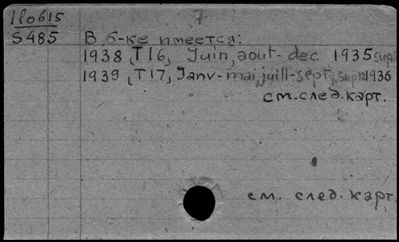 По615 7
S485 В б-ке имеется:
1938, T16, Juin, aout-dec 1935 sup
1939, T17, Janv-mai, juill-sept, sup 1936
см. след. карт.
см. след. карт.